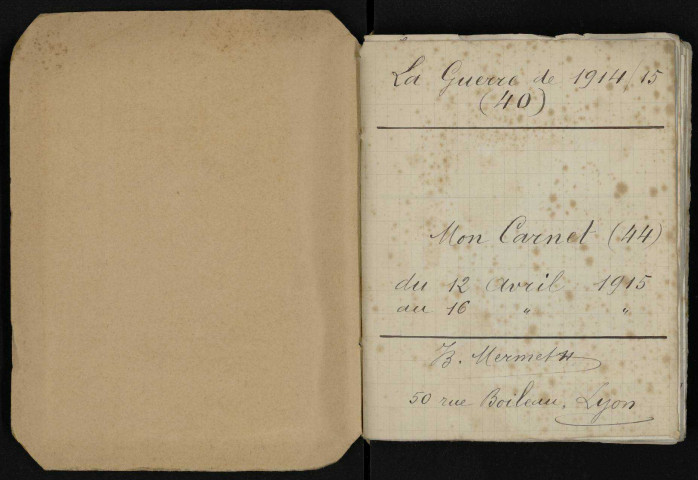 La Guerre de 1914/15
(40)
Mon Carnet (44)
du 12 Avril 1915
au 16 " "
B. Mermet
50 rue Boileau, Lyon